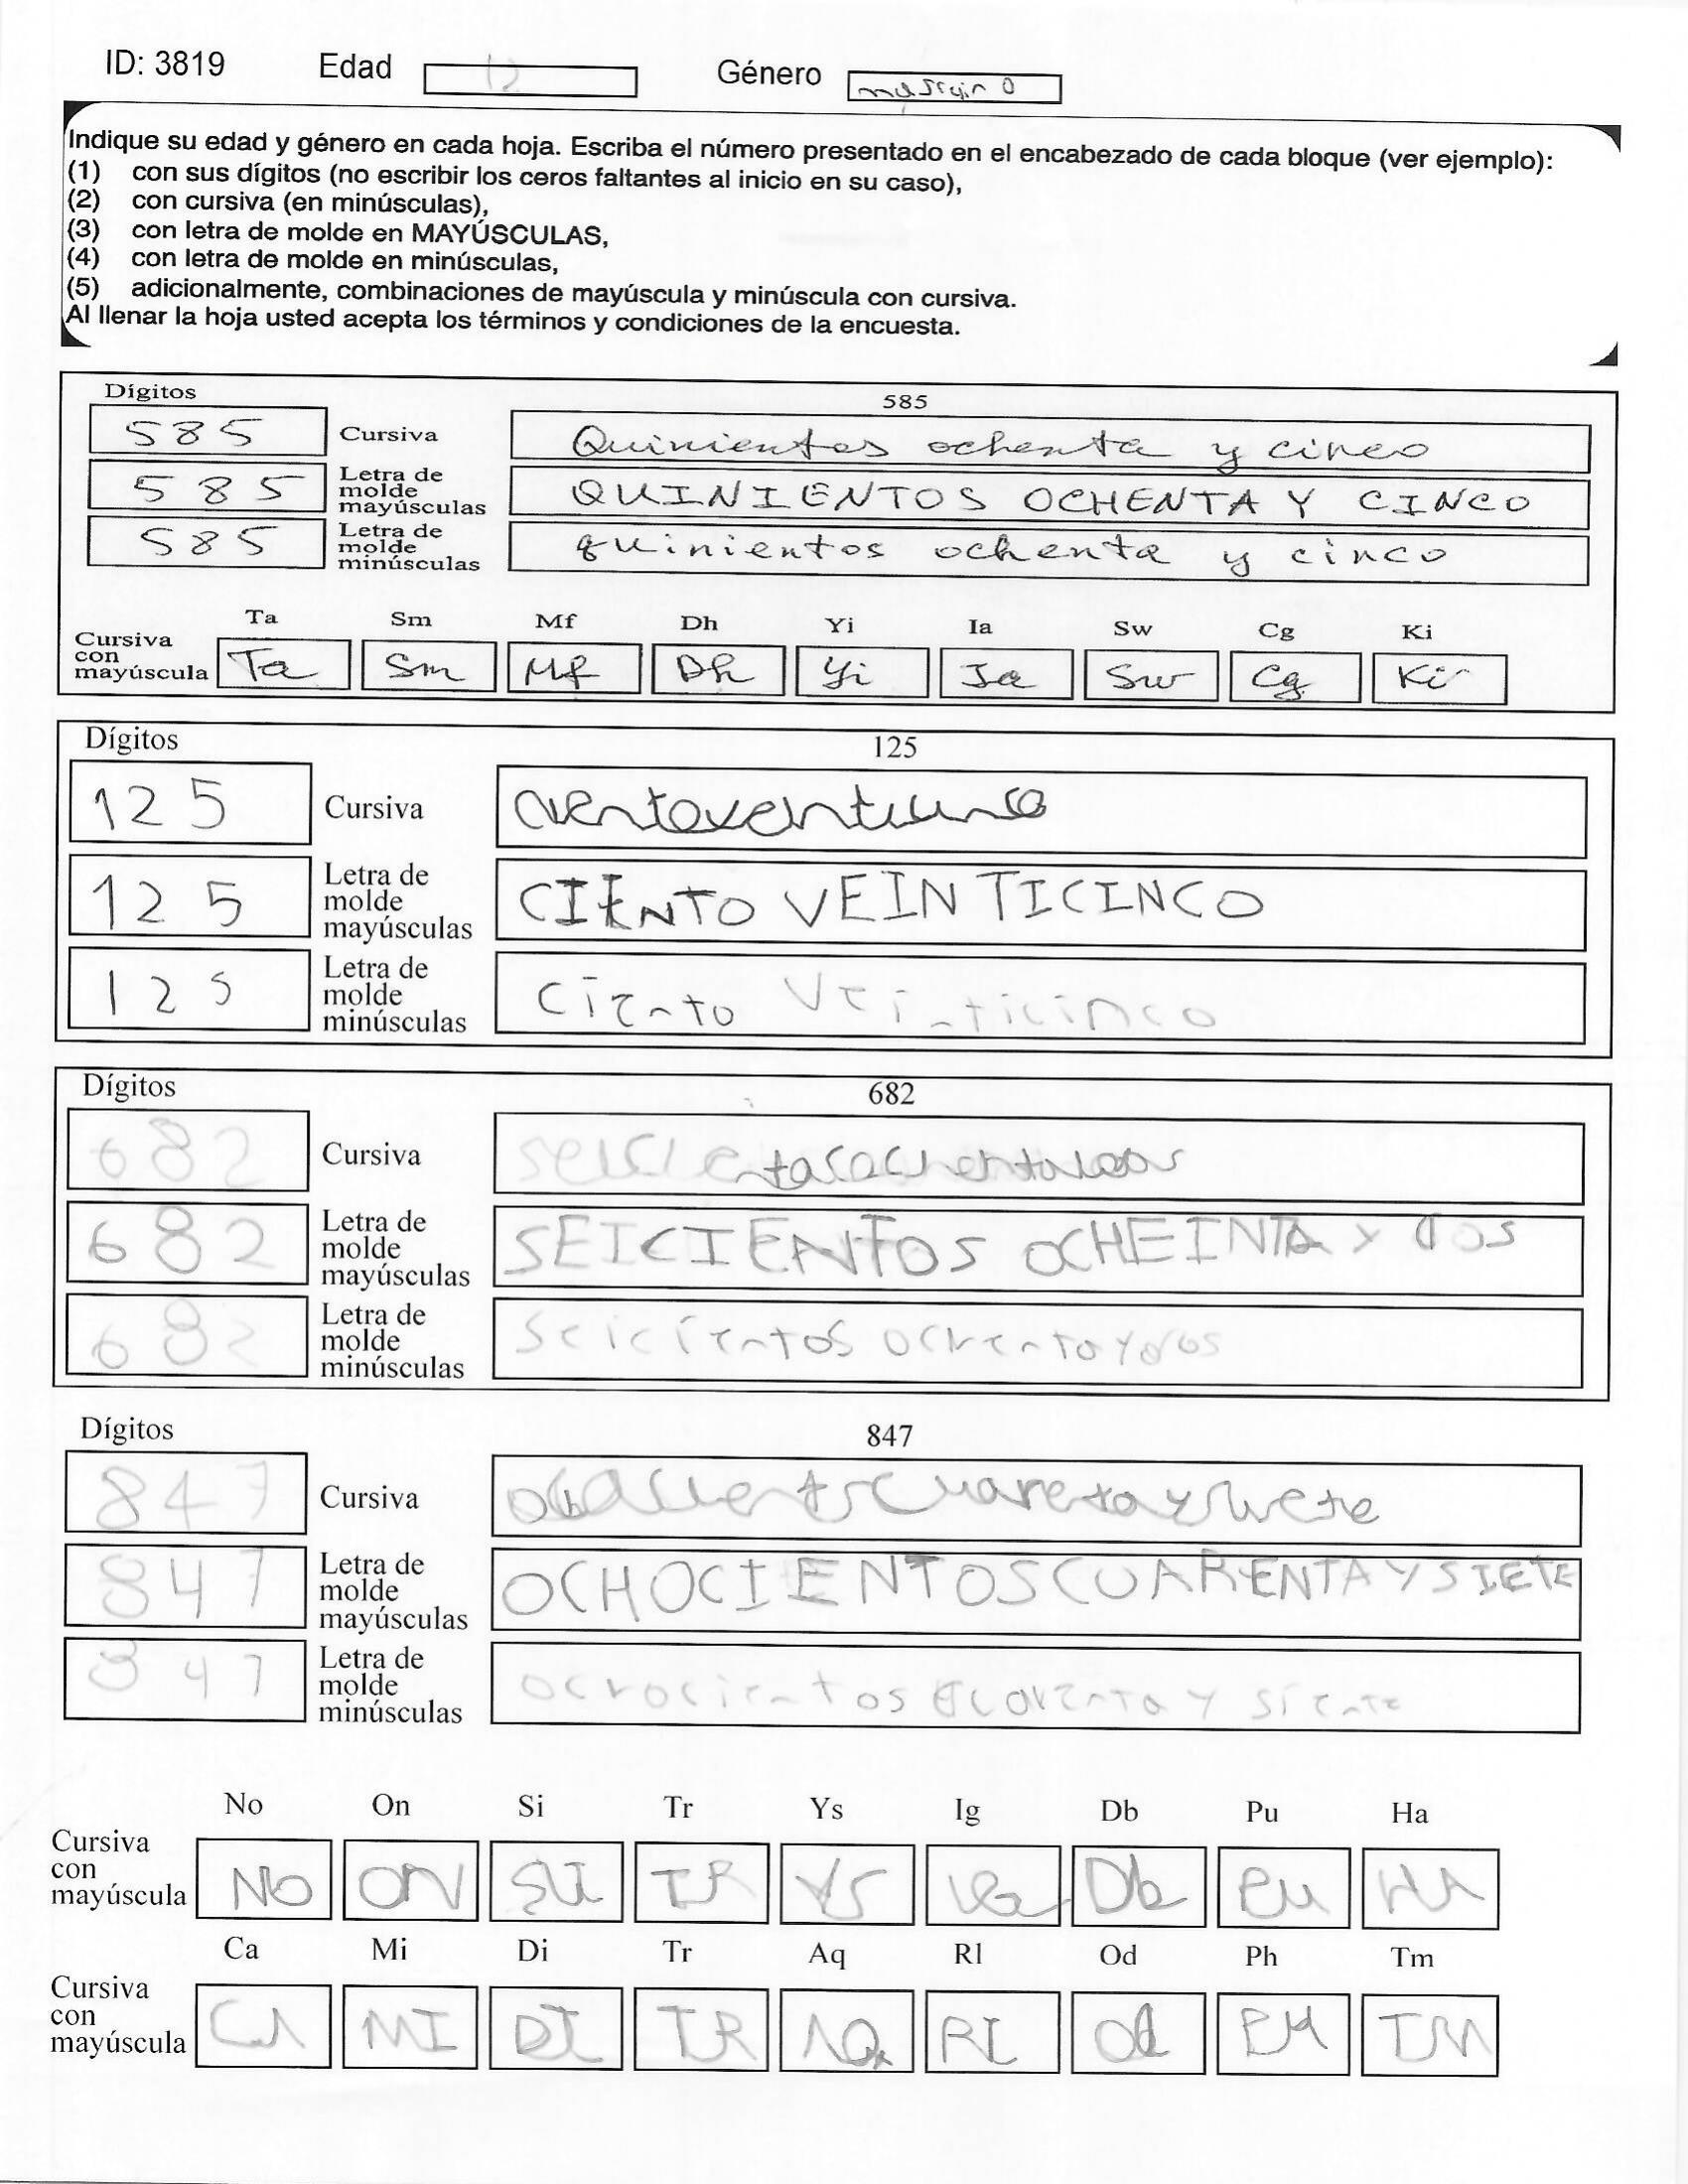 ID: 3819 Edad 12 Género
Indique su edad y género en cada hoja. Escriba el número presentado en el encabezado de cada bloque (ver ejemplo):
(1) con sus dígitos (no escribir los ceros faltantes al inicio en su caso),
(2) con cursiva (en minúsculas),
(3) con letra de molde en MAYÚSCULAS,
(4) con letra de molde en minúsculas,
(5) adicionalmente, combinaciones de mayúscula y minúscula con cursiva.
Al llenar la hoja usted acepta los términos y condiciones de la encuesta.
Dígitos 585
585 Cursiva Quinientos ochenta y cinco
585 Letra de molde mayúsculas QUINIENTOS OCHENTA Y CINCO
585 Letra de molde minúsculas quinientos ochenta y cinco
Ta Sm Mf Dh Yi Ia Sw Cg Ki
Cursiva con mayúscula Ta Sm Mf Dh Yi Ia Sw Cg Ki
Dígitos 125
125 Cursiva
125 Letra de molde mayúsculas CIENTO VEINTICINCO
125 Letra de molde minúsculas ciento veinticinco
Dígitos 682
682 Cursiva
682 Letra de molde mayúsculas SEICIENTOS OCHEINTA Y DOS
682 Letra de molde minúsculas seicientos ochentaydos
Dígitos 847
847 Cursiva
847 Letra de molde mayúsculas OCHOCIENTOSCUARENTAYSIETE
847 Letra de molde minúsculas ochocientos y siente
No On Si Tr Ys Ig Db Pu Ha
Cursiva con mayúscula NO ON SI TR YS Db PU HA
Ca Mi Di Tr Aq Rl Od Ph Tm
Cursiva con mayúscula CA MI DI TR AQ RI Od PH TM